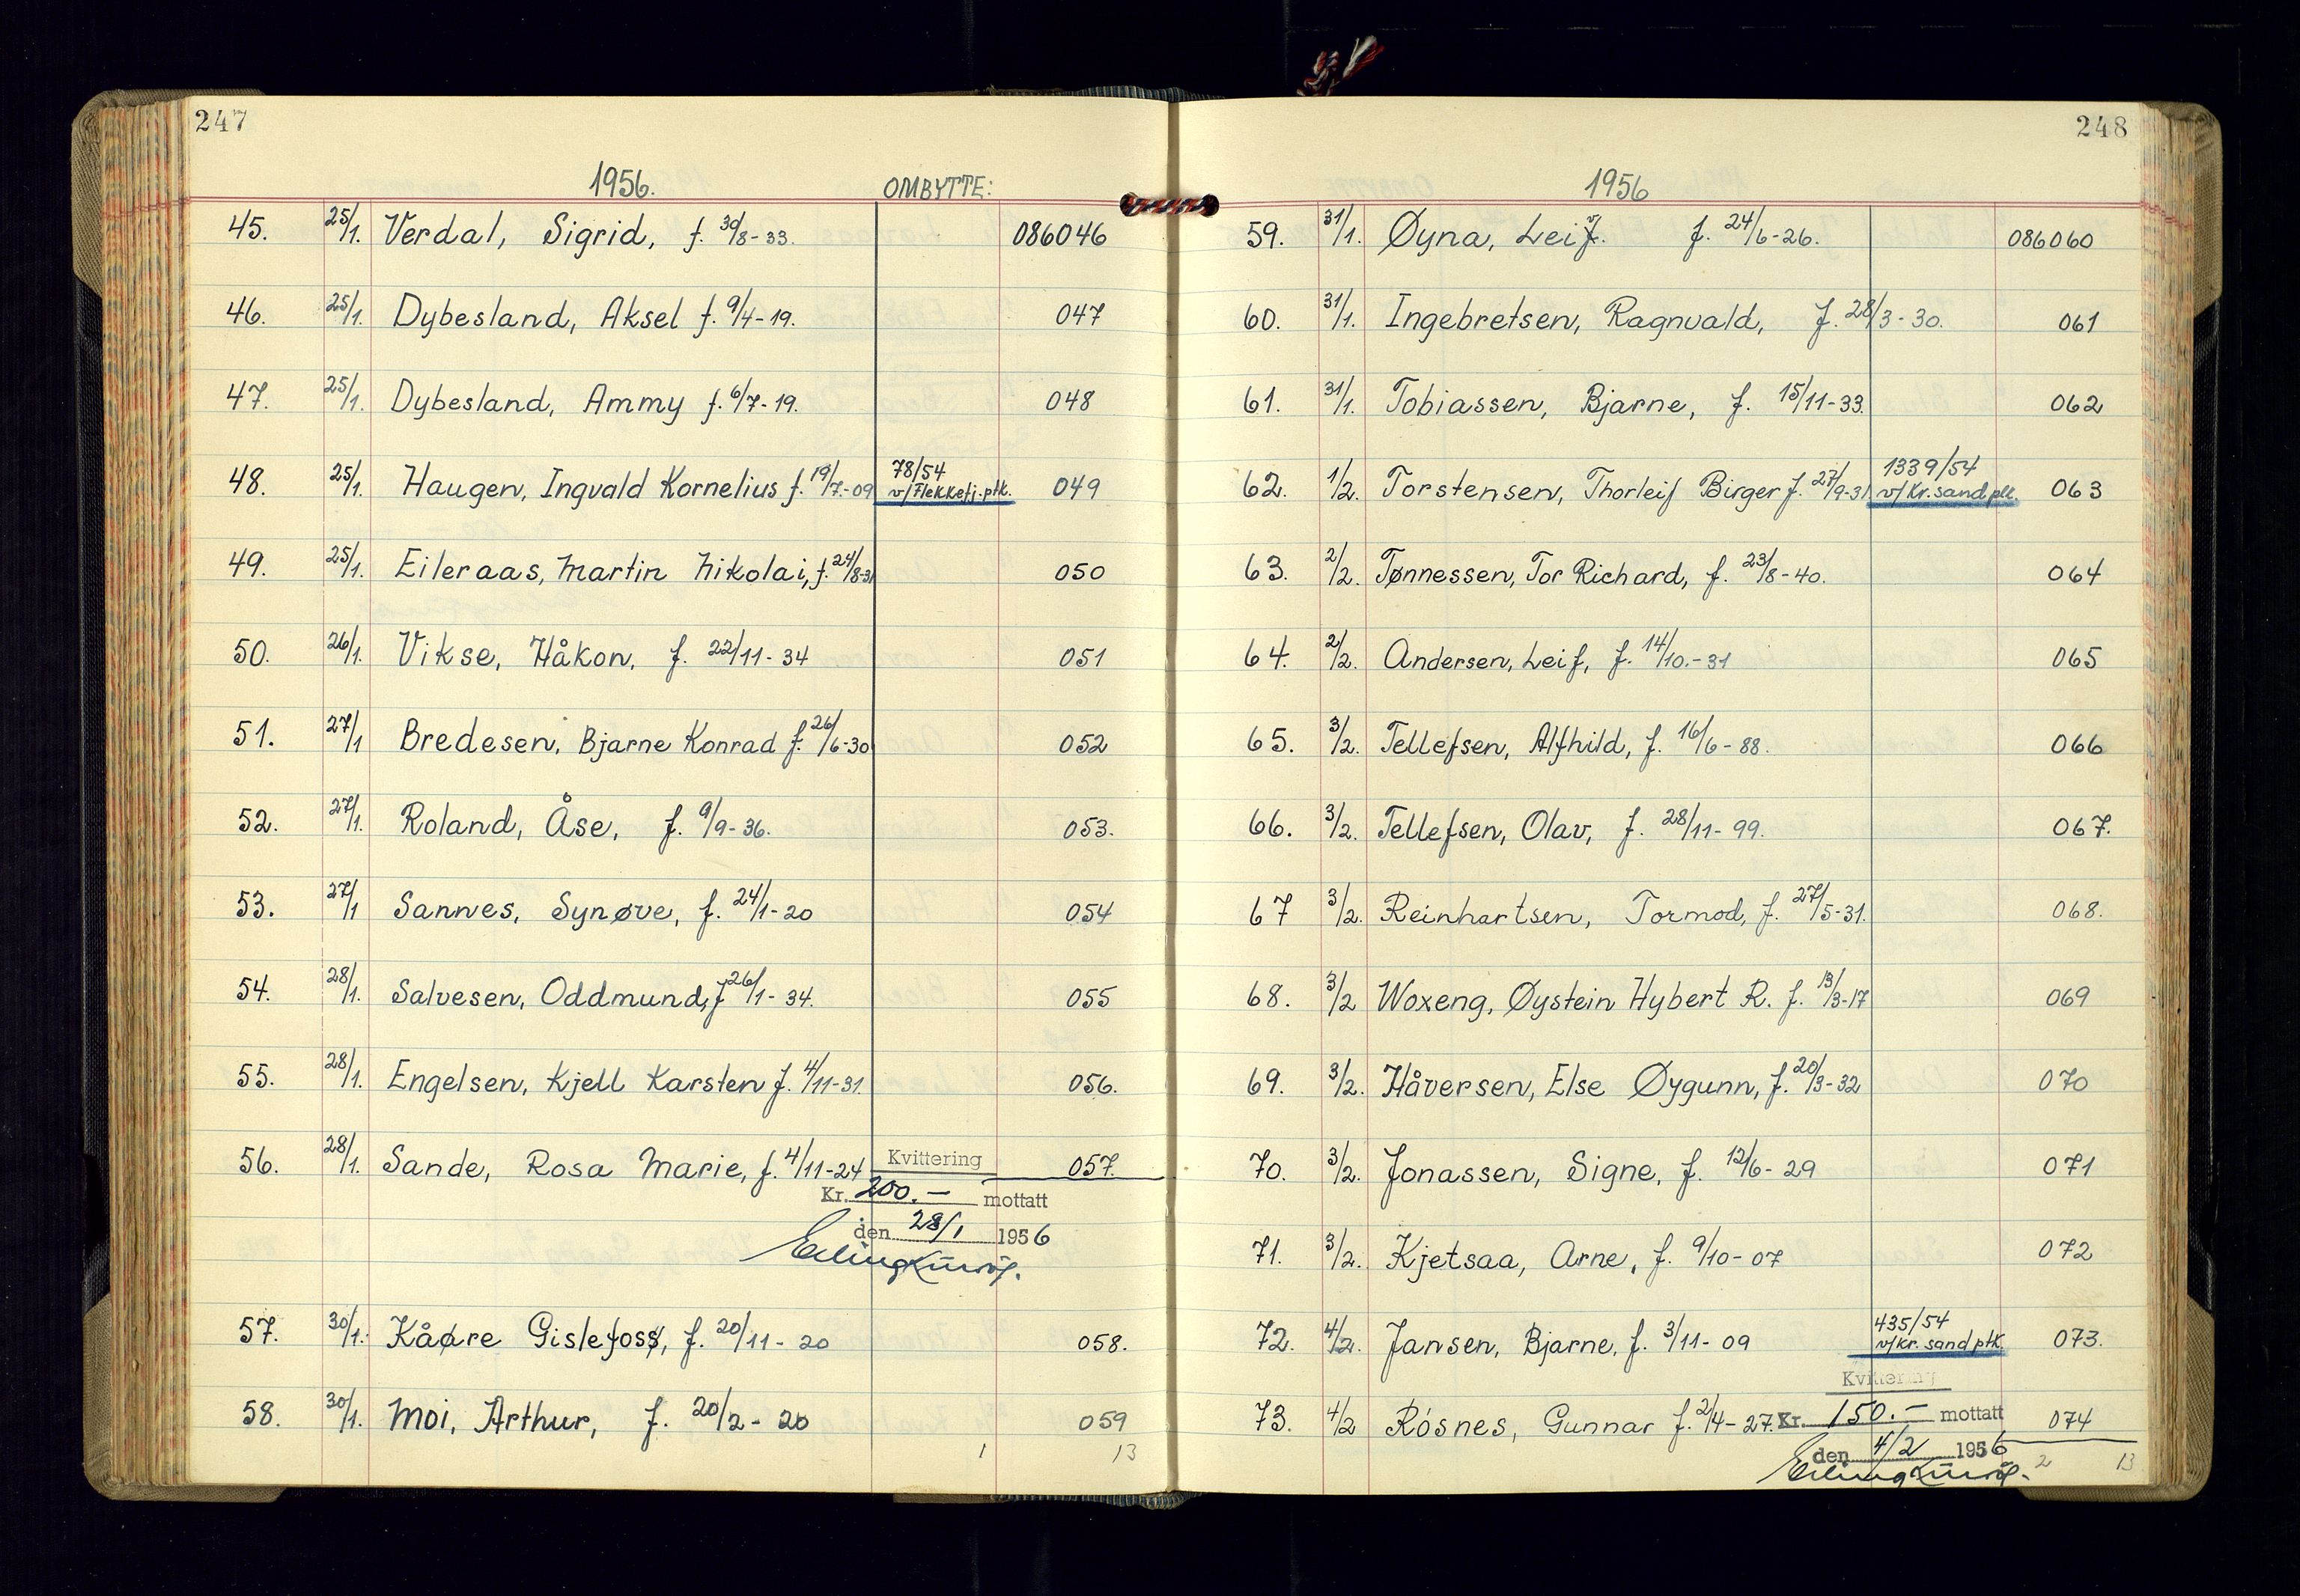 247
1956. OMBYTTE:
45. 25/1. Verdal, Sigrid, f. 30/8-33. 086046
46. 25/1. Dybesland, Aksel f. 9/4-19. 047
47. 25/1. Dybesland, Ammy f. 6/7-19. 048
48. 25/1. Haugen, Ingvald Kornelius f. 19/7-09 78/54 v/Flekkefj.ptk. 049
49. 25/1. Eileraas, Martin Nikolai, f. 24/8-31 050
50. 26/1. Vikse, Håkon, f. 22/11-34 051
51. 27/1 Bredesen, Bjarne Konrad f. 26/6-30 052
52. 27/1. Roland, Åse, f. 9/9-36. 053.
53. 27/1 Sannes, Synøve, f. 24/1-20 054
54. 28/1. Salvesen, Oddmund, f 26/1-34. 055
55. 28/1. Engelsen, Kjell Karsten f. 4/11-31. 056.
56. 28/1. Sande, Rosa Marie, f. 4/11-24 Kvittering 057.
Kr. 200.- mottatt
den 28/1 1956
57. 30/1. Kåare Gislefoss, f. 20/11-20 058.
58. 30/1. Moi, Arthur, f. 20/2-20 059
1 13
248
1956
59. 31/1. Øyna, Leif. f. 24/6-26. 086060
60. 31/1. Ingebretsen, Ragnvald, f. 28/3-30. 061
61. 31/1. Tobiassen, Bjarne, f. 15/11-33. 062
62. 1/2. Torstensen, Thorleif Birger f. 27/9-31 1339/54 v/Kr.sand ptk. 063
63. 2/2. Tønnessen, Tor Richard, f. 23/8-40. 064
64. 2/2. Andersen, Leif, f. 14/10.-31 065
65. 3/2. Tellefsen, Alfhild, f. 16/6-88. 066
66. 3/2. Tellefsen, Olav, f. 28/11-99. 067.
67 3/2. Reinhartsen, Tormod, f. 27/5-31. 068.
68. 3/2 Woxeng, Øystein Hybert R. f. 13/3-17 069
69. 3/2. Håversen, Else Øygunn, f. 20/3-32 070
70. 3/2. Jonassen, Signe, f. 12/6-29 071
71. 3/2. Kjetsaa, Arne, f. 9/10-07 072
72. 4/2. Jansen, Bjarne, f. 3/11-09 435/54 v/Kr.sand ptk. 073.
Kvittering
73. 4/2 Rosnes, Gunnar f. 2/4-27. Kr. 150.- mottatt 074
den 4/2 1956
2 13